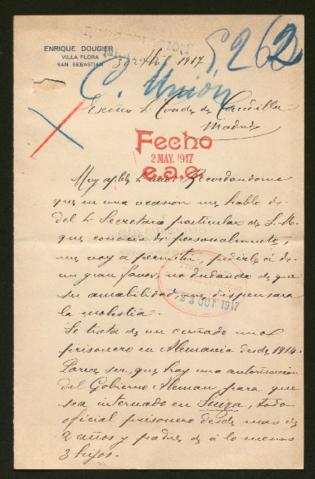 ENRIQUE DOUGIER
VILLA FLORA
SAN SEBASTIAN
1917.
5262
C. Unión
Exmo S. Conde de
Madrid
Fecho
2 MAY. 1917
e.a.e.
Muy Recordandome
que en una ocasion me hablo
del S. Secretario particular de S. M.
que conocia personalmente,
me voy a permitir, pedirle
un gran favor, no dudando de que
su amabilidad dispensara
la molestia.
23 OCT 1917
Se trata de un cuñado mio
prisonero en Alemania desde 1914.
Parece ser, que hay una autorizacion
del Gobierno Aleman, para que
sea internado en Suiza, todo
oficial prisonero desde mas de
2 años y padre de a lo menos
3 hijos.